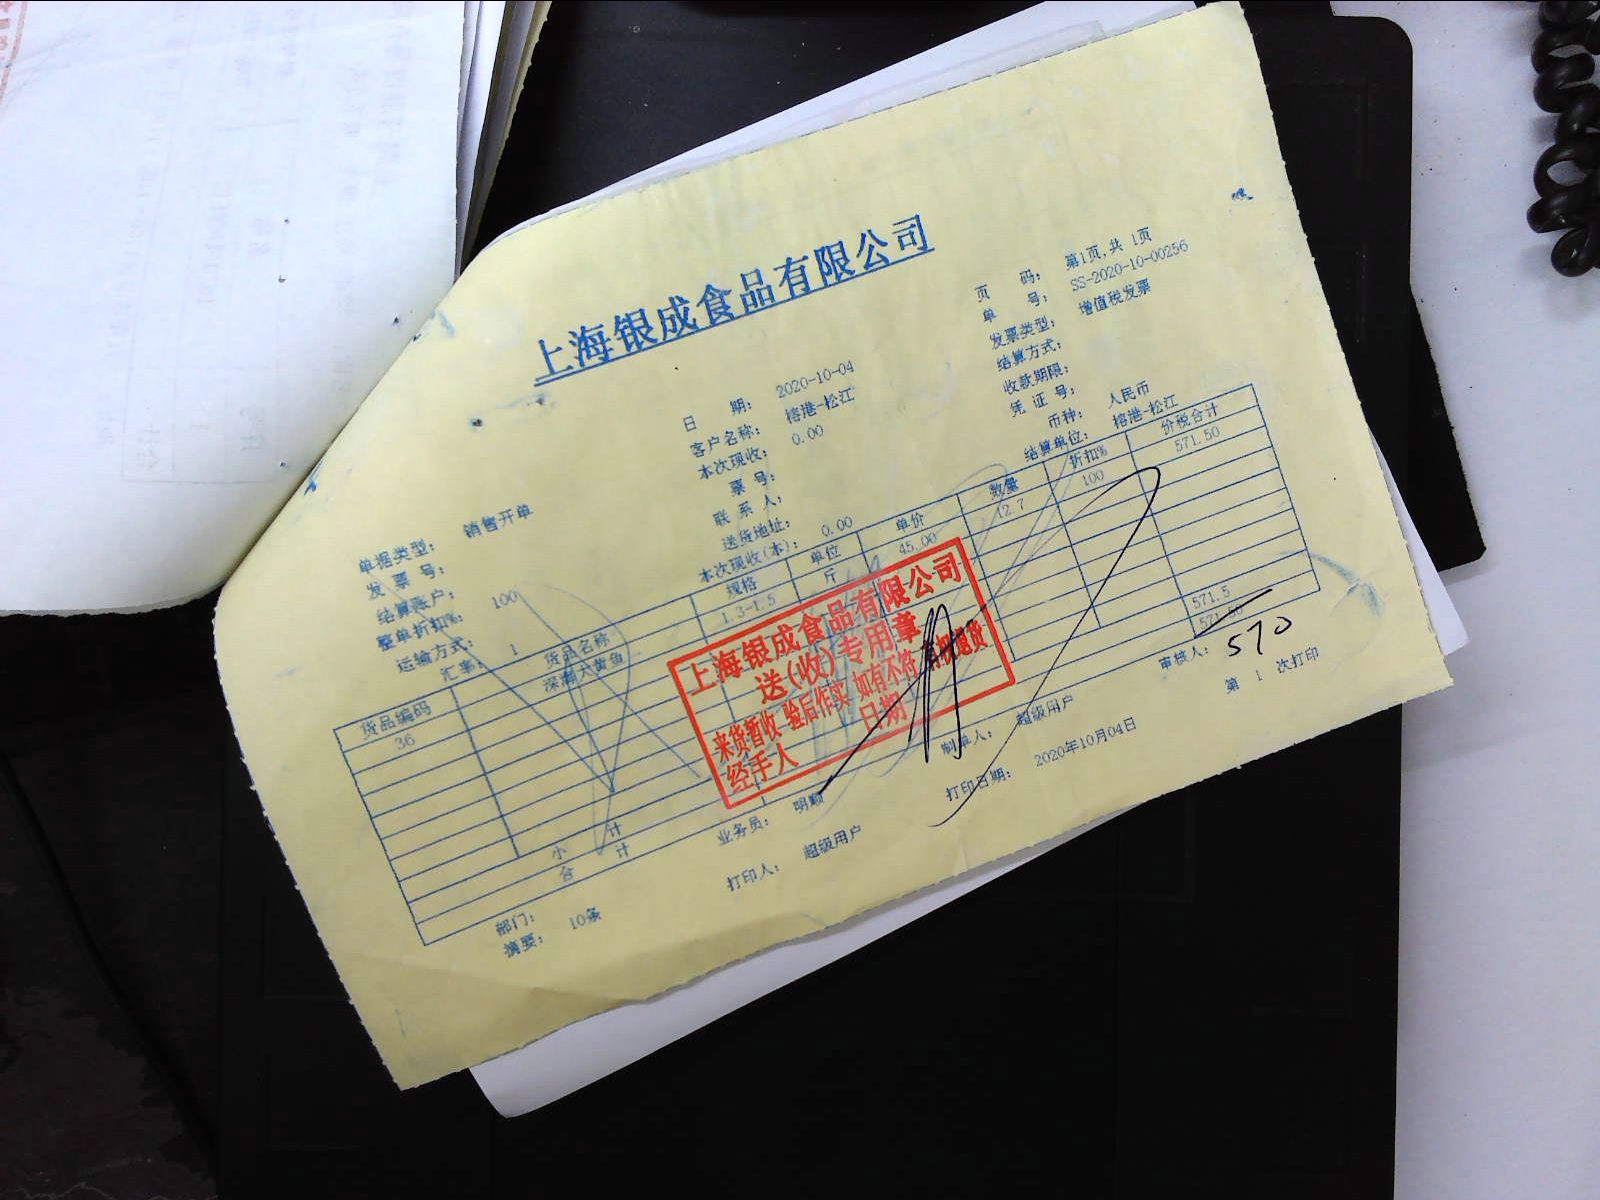 上海银成食品有限公司
页 码: 第1页,共 1页
单 号: SS-2020-10-00256
日 期: 2020-10-04 发票类型: 增值税发票
客户名称: 榕港-松江 结算方式:
本次现收: 0.00 收款期限:
票 号: 凭 证 号:
单据类型: 销售开单 联 系 人: 币种: 人民币
发 票 号: 送货地址: 结算单位: 榕港-松江
结算账户: 本次现收(本): 0.00
整单折扣%: 100
运输方式:
汇率: 1
货品编码 货品名称 规格 单位 单价 数量 折扣% 价税合计
36 深潮大黄鱼 1.3-1.5 斤 45.00 12.7 100 571.50
小 计 571.5
合 计 571.50
570
上海银成食品有限公司
送(收)专用章
来货暂收 验后作实 如有不符 有权退货
经手人 日期
部门: 业务员: 明顺 制单人: 超级用户 审核人:
摘要: 10条 打印人: 超级用户 打印日期: 2020年10月04日 第 1 次打印